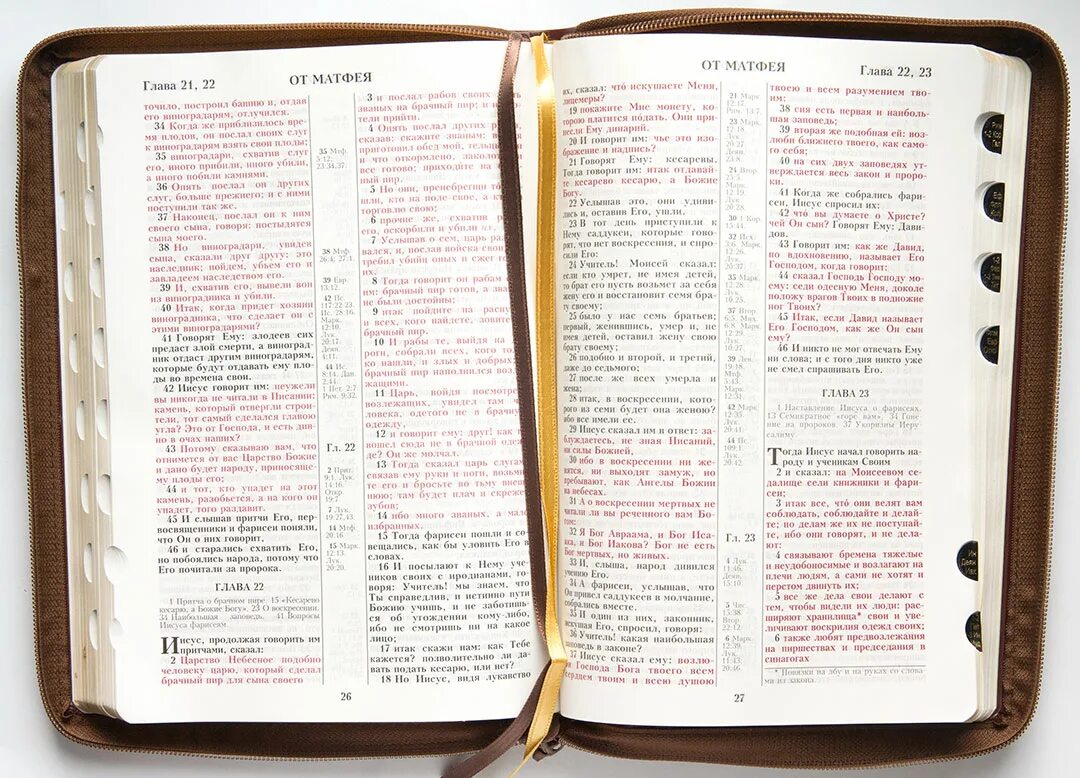 Глава 21, 22
ОТ МАТФЕЯ
точило, построил башню и, отдав
его виноградарям, отлучился.
34 Когда же приблизилось время
плодов, он послал своих слуг
к виноградарям взять свои плоды;
35 виноградари, схватив слуг
его, иного прибили, иного убили,
а иного побили камнями.
36 Опять послал он других
слуг, больше прежнего; и с ними
поступили так же.
37 Наконец, послал он к ним
своего сына, говоря: постыдятся
сына моего.
38 Но виноградари, увидев
сына, сказали друг другу: это
наследник; пойдем, убьем его и
завладеем наследством его.
39 И, схватив его, вывели вон
из виноградника и убили.
40 Итак, когда придет хозяин
виноградника, что сделает он с
этими виноградарями?
41 Говорят Ему: злодеев сих
предаст злой смерти, а виноградник
отдаст другим виноградарям,
которые будут отдавать ему пло-
ды во времена свои.
42 Иисус говорит им: неужели
вы никогда не читали в Писании:
камень, который отвергли строи-
тели, тот самый сделался главою
угла? Это от Господа, и есть див-
но в очах наших?
43 Потому сказываю вам, что
отнимется от вас Царство Божие
и дано будет народу, приносяще-
му плоды его;
44 и тот, кто упадет на этот
камень, разобьется, а на кого он
упадет, того раздавит.
45 И слышав притчи Его, пер-
восвященники и фарисеи поняли,
что Он о них говорит,
46 и старались схватить Его,
но побоялись народа, потому что
Его почитали за пророка.
ГЛАВА 22
1 Притча о брачном пире. 15 «Кесарево
кесарю, а Божие Богу». 23 О воскресении.
34 Наибольшая заповедь. 41 Вопросы
Иисуса фарисеям
Иисус, продолжая говорить им
притчами, сказал:
2 Царство Небесное подобно
человеку царю, который сделал
брачный пир для сына своего
35 Мтф.
5:12;
23:34,37.
38 Мтф.
26:4; 27:1.
39 Евр.
13:12
42 Пс.
Гл. 22
3 и послал рабов своих
званых на брачный пир; и
тели прийти.
4 Опять послал других
сказав: скажите званым:
приготовил обед мой, тельцы
и что откормлено, заколото
все готово; приходите на
ный пир.
5 Но они, пренебрегши то
шли, кто на поле свое, а к
торговлю свою;
6 прочие же, схватив р
его, оскорбили и убили их
7 Услышав о сем, царь раз
вался, и, послав войска свои
требил убийц оных и сжег го
их.
8 Тогда говорит он рабам
им: брачный пир готов, а зва
не были достойны;
9 итак пойдите на распу
и всех, кого найдете, зовите
брачный пир.
10 И рабы те, выйдя на
роги, собрали всех, кого то
ко нашли, и злых и добрых
брачный пир наполнился возл
жащими.
11 Царь, войдя посмотре
возлежащих, увидел там
ловека, одетого не в брачну
одежду,
12 и говорит ему: друг! как
вошел сюда не в брачной одеж
де? Он же молчал.
13 Тогда сказал царь слугам
связав ему руки и ноги, возьмите
те его и бросьте во тьму внеш
нюю; там будет плач и скрежет
зубов;
14 ибо много званых, а мало
избранных.
15 Тогда фарисеи пошли и со-
вещались, как бы уловить Его в
словах.
16 И посылают к Нему уче-
ников своих с иродианами, гово-
воря: Учитель! мы знаем, что
Ты справедлив, и истинно пути
Божию учишь, и не заботишь-
ся об угождении кому-либо,
ибо не смотришь ни на какое
лицо;
17 итак скажи нам: как Тебе
кажется? позволительно ли да-
вать подать кесарю, или нет?
18 Но Иисус, видя лукавство
26
ОТ МАТФЕЯ
Глава 22, 23
их, сказал: что искушаете Меня,
лицемеры?
19 покажите Мне монету, ко-
торою платится подать. Они при-
несли Ему динарий.
20 И говорит им: чье это изо-
бражение и надпись?
21 Говорят Ему: кесаревы.
Тогда говорит им: итак отдавай-
те кесарево кесарю, а Божие
Богу.
22 Услышав это, они удиви-
лись и, оставив Его, ушли.
23 В тот день приступили к
Нему саддукеи, которые гово-
рят, что нет воскресения, и спро-
сили Его:
24 Учитель! Моисей сказал:
если кто умрет, не имея детей,
то брат его пусть возьмет за себя
жену его и восстановит семя бра-
ту своему;
25 было у нас семь братьев:
первый, женившись, умер и, не
имея детей, оставил жену свою
брату своему;
26 подобно и второй, и третий,
даже до седьмого;
27 после же всех умерла и
жена;
28 итак, в воскресении, кото-
рого из семи будет она женою?
ибо все имели ее.
29 Иисус сказал им в ответ: за-
блуждаетесь, не зная Писаний,
ни силы Божией,
30 ибо в воскресении ни же-
нятся, ни выходят замуж, но
пребывают, как Ангелы Божии
на небесах.
31 А о воскресении мертвых не
читали ли вы реченного вам Бо-
гом:
32 Я Бог Авраама, и Бог Иса-
ака, и Бог Иакова? Бог не есть
Бог мертвых, но живых.
33 И, слыша, народ дивился
учению Его.
34 А фарисеи, услышав, что
Он привел саддукеев в молчание,
собрались вместе.
35 И один из них, законник,
искушая Его, спросил, говоря:
36 Учитель! какая наибольшая
заповедь в законе?
37 Иисус сказал ему: возлю-
би Господа Бога твоего всем
сердцем твоим и всею душою
21 Марк.
12:17
Рим. 13:7.
23 Марк.
12:18
Гл. 23
твоею и всем разумением тво-
им:
38 сия есть первая и наиболь-
шая заповедь;
39 вторая же подобная ей: воз-
люби ближнего твоего, как само-
го себя;
40 на сих двух заповедях ут-
верждается весь закон и проро-
ки.
41 Когда же собрались фари-
сеи, Иисус спросил их:
42 что вы думаете о Христе?
чей Он сын? Говорят Ему: Дави-
дов.
43 Говорит им: как же Давид,
по вдохновению, называет Его
Господом, когда говорит:
44 сказал Господь Господу мо-
ему: седи одесную Меня, доколе
положу врагов Твоих в подножие
ног Твоих?
45 Итак, если Давид называет
Его Господом, как же Он сын
ему?
46 И никто не мог отвечать Ему
ни слова; и с того дня никто уже
не смел спрашивать Его.
ГЛАВА 23
1 Наставление Иисуса о фарисеях.
13 Семикратное «горе вам». 34 Гоне-
ние на пророков. 37 Укоризны Иеру-
салиму
Тогда Иисус начал говорить на-
роду и ученикам Своим
2 и сказал: на Моисеевом се-
далище сели книжники и фари-
сеи;
3 итак все, что они велят вам
соблюдать, соблюдайте и делай-
те; но делам же их не поступай-
те, ибо они говорят, и не дела-
ют:
4 связывают бремена тяжелые
и неудобоносимые и возлагают на
плечи людям, а сами не хотят и
перстом двинуть их;
5 все же дела свои делают с
тем, чтобы видели их люди: рас-
ширяют хранилища* свои и уве-
личивают воскрилия одежд своих;
6 также любят предвозлежания
на пиршествах и председания в
синагогах
* Повязки на лбу и на руках со слова-
ми из закона.
27